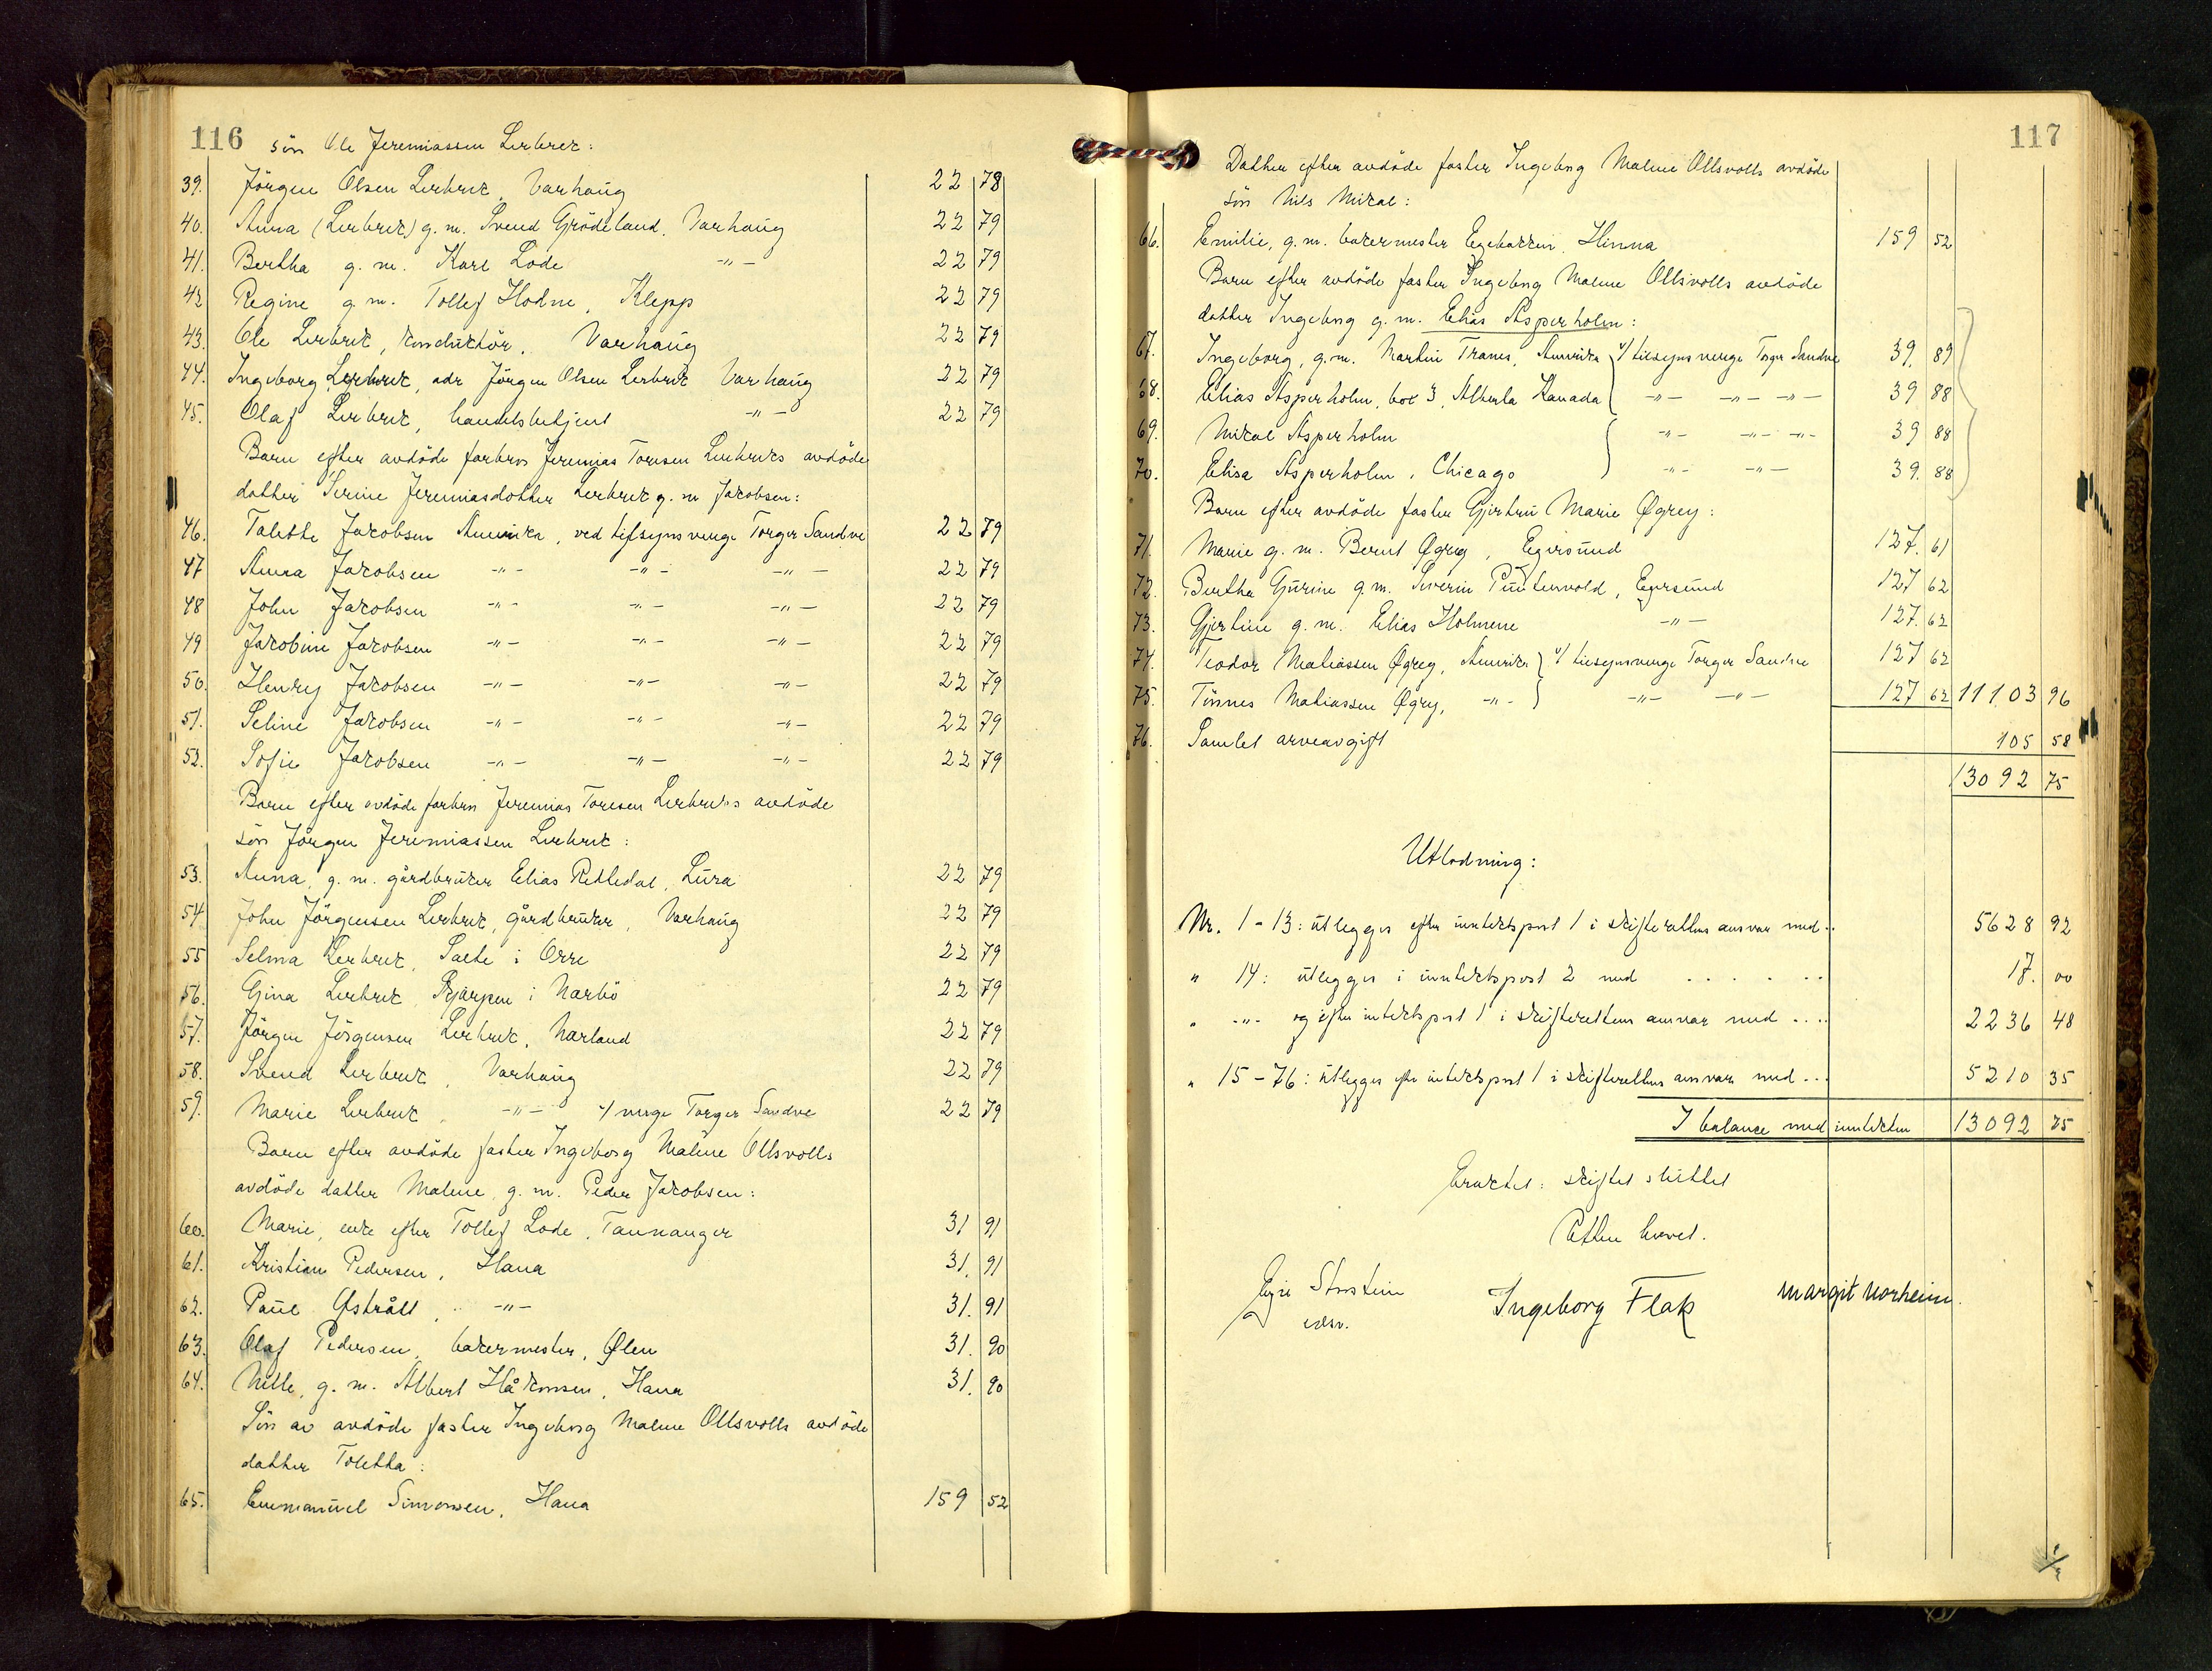 116
sön Ole Jeremiassen Lerbrek:
39. Jörgen Olsen Lerbrek, Varhaug 22 78
40. Anna (Lerbrek) g. m. Svend Grödeland, Varhaug 22 79
41. Bertha g. m. Karl Lode -"- 22 79
42 Regine g. m. Tollef Hodne, Klepp 22 79
43. Ole Lerbrek, konduktör, Varhaug 22 79
44. Ingeborg Lerbrek, adr Jörgen Olsen Lerbrek Varhaug 22 79
45. Olaf Lerbrek, handelsbetjent -"- 22 79
Barn efter avdöde farbror Jeremias Toresen Lerbreks avdöde
datter Serine Jeremiasdotter Lerbrek g. m Jakobsen:
46. Talette Jakobsen Amerika, ved tilsynsverge Torger Sandve 22 79
47 Anna Jakobsen -"- -"- -"- 22 79
48 John Jakobsen -"- -"- -"- 22 79
49 Jakobine Jakobsen -"- -"- -"- 22 79
50. Henry Jakobsen -"- -"- -"- 22 79
51. Seline Jakobsen -"- -"- -"- 22 79
52. Sofie Jakobsen -"- -"- -"- 22 79
Barn efter avdöde farbror Jeremias Toresen Lerbreks avdöde
sön Jörgen Jeremiassen Lerbrek:
53. Anna, g. m. gårdbruker Elias Retledal, Lura 22 79
54 John Jörgensen Lerbrek, gårdbruker, Varhaug 22 79
55 Selma Lerbrek, Salte i Orre 22 79
56. Gina Lerbrek, i Nærbö 22 79
57. Jörgen Jörgensen Lerbrek, Nærland 22 79
58. Svend Lerbrek, Varhaug 22 79
59. Marie Lerbrek, -"- v/ verge Torger Sandve 22 79
Barn efter avdöde faster Ingeborg Maline Ollsvolls
avdöde datter Malene, g. m. Peder Jakobsen:
60. Marie, enke efter Tollef Lode, Tannanger 31 91
61. Kristian Pedersen, Hana 31. 91
62. Paul Østrått, -"- 31. 91
63. Olaf Pedersen, bakermester, Ølen 31. 90
64. Nille, g. m. Albert Håkonsen, Hana 31. 90
Sön av avdöde faster Ingeborg Malene Ollsvolls avdöde
datter Toletta:
65. Emmanuel Simonsen, Hana 159 52
117
Datter efter avdöde faster Ingeborg Malene Ollsvolls avdöde
sön Nils Mikal:
66. Emilie, g. m. bakermester Egebakken, Hinna 159 52
Barn efter avdöde faster Ingeborg Malene Ollsvolls avdöde
datter Ingeborg g. m. Elias Asperholm:
67. Ingeborg, g. m. Martin Tranes, Amerika v/ tilsynsverge Torger Sandve 39. 89
68. Elias Asperholm, box 3, Alberta Kanada -"- -"- -"- 39 88
69. Mikal Asperholm -"- -"- -"- 39 88
70. Elisa Asperholm, Chicago -"- -"- 39. 88
Barn efter avdöde faster Gjertru Marie Øgrey:
71. Marie g. m. Bernt Øgrey, Egersund 127. 61
72. Bertha Gurine g. m. Severin Puntervold, Egersund 127 62
73. Gjertine g. m. Elias Holmene -"- 127. 62
74. Teodor Matiassen Øgrey, Amerika v/ tilsynsverge Torger Sandve 127 62
75. Tönnes Matiassen Øgrey, -"- -"- -"- 127 62 11103 96
76. Samlet arveavgift 105 58
13092 75
Utlodning:
Nr. 1 - 13: utlegges efter inntektspost 1 i skifterettens ansvar med.. 5628 92
" 14: utlegges i inntektspost 2 med . . . . . . 17. 00
" -"- og efter inntektspost 1 i skifterettens ansvar med .... 2236 48
" 15 - 76: utlegges efter inntektspost 1 i skifterettens ansvar med ... 5210 35
I balance med inntekten 13092 75
Eraktet: skiftet sluttet
Retten hevet.
Storstein
Ingeborg Flak
Margit Norheim.